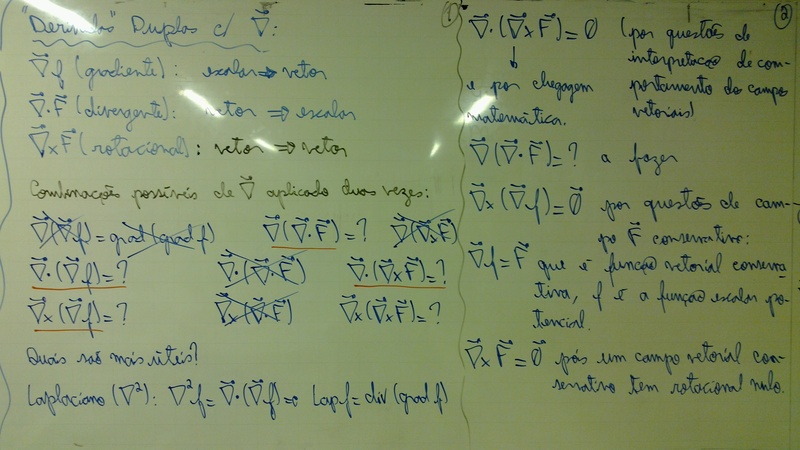 ①
"Derivadas" Duplas c/ ∇⃗:
∇⃗f (gradiente): escalar ⇒ vetor
∇⃗·F⃗ (divergente): vetor ⇒ escalar
∇⃗×F⃗ (rotacional): vetor ⇒ vetor
Combinações possíveis de ∇⃗ aplicado duas vezes:
∇⃗(∇⃗f) = grad(grad f) ∇⃗(∇⃗·F⃗) = ? ∇⃗(∇⃗×F⃗)
∇⃗·(∇⃗f) = ? ∇⃗·(∇⃗·F⃗) ∇⃗·(∇⃗×F⃗) = ?
∇⃗×(∇⃗f) = ? ∇⃗×(∇⃗·F⃗) ∇⃗×(∇⃗×F⃗) = ?
Quais são mais úteis?
Laplaciano (∇²): ∇²f = ∇⃗·(∇⃗f) ⇒ Lap f = div (grad f)
②
∇⃗·(∇⃗×F⃗) = 0 (por questões de
interpretação de com-
e por chegagem portamento do campo
matemática. vetorial)
∇⃗(∇⃗·F⃗) = ? a fazer
∇⃗×(∇⃗f) = 0⃗ por questões de cam-
po F⃗ conservativo:
∇⃗f = F⃗ que é função vetorial conserva
tiva, f é a função escalar po-
tencial.
∇⃗×F⃗ = 0⃗ pois um campo vetorial con-
servativo tem rotacional nulo.